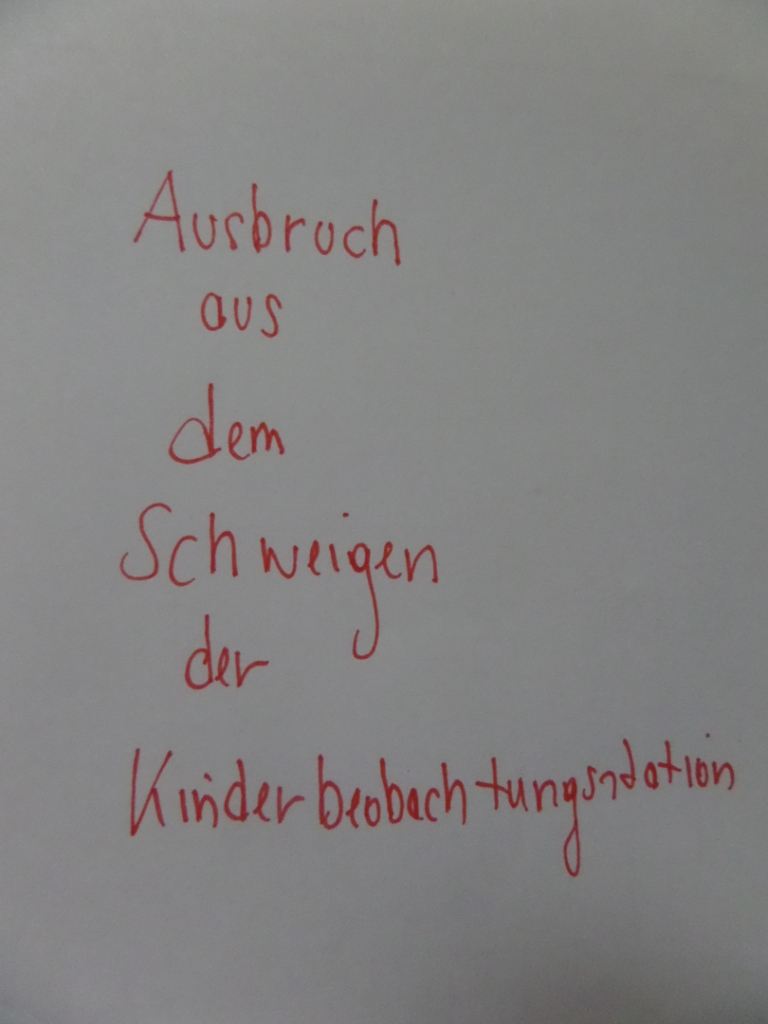 Ausbruch
aus
dem
Schweigen
der
Kinderbeobachtungsstation